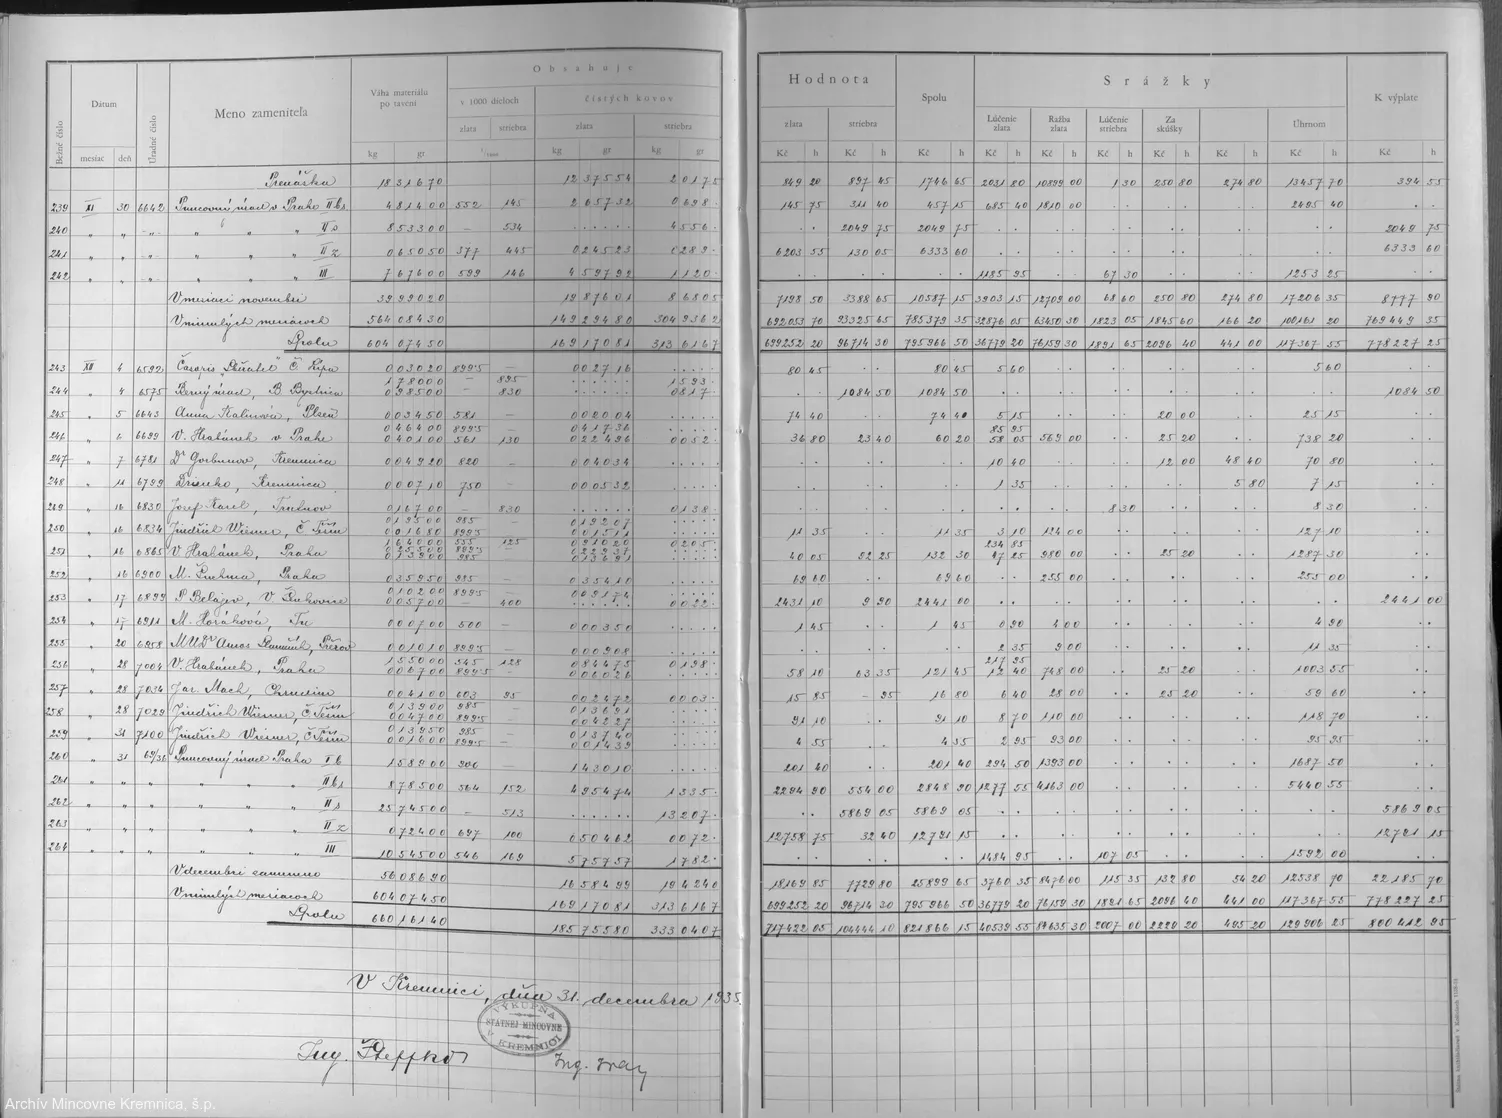 Obsahuje
Bežné číslo
Dátum
Úradné číslo
Meno zameniteľa
Váha materiálu po tavení
v 1000 dieloch
čistých kovov
zlata striebra zlata striebra
mesiac deň kg gr 1/1000 kg gr kg gr
Hodnota Spolu Srážky K výplate
zlata striebra Lúčenie zlata Ražba zlata Lúčenie striebra Za skúšky Úhrnom
Kč h Kč h Kč h Kč h Kč h Kč h Kč h Kč h Kč h Kč h
Prenáška 18 316 70 12 375 54 2 017 5 849 20 897 45 1746 65 2031 80 10899 00 1 30 250 80 274 80 13457 70 394 55
239 XI 30 6642 Puncovný úrad v Prahe II bs 4 814 00 552 145 2 657 32 0 698 145 75 311 40 457 15 685 40 1810 00 2495 40
240 " " " " " II s 8 533 00 — 534 4 556 2049 75 2049 75 2049 75
241 " " " " " II z 0 650 50 377 445 0 245 23 0 289 6203 55 130 05 6333 60 6333 60
242 " " " " " III 7 676 00 599 146 4 597 92 1 120 1185 95 67 30 1253 25
V mesiaci novembri 39 990 20 19 876 01 8 680 5 7198 50 3388 65 10587 15 3903 15 12709 00 68 60 250 80 274 80 17206 35 8777 90
V minulých mesiacoch 564 084 30 149 294 80 304 936 2 692053 70 93325 65 785379 35 32876 05 63450 30 1823 05 1845 60 166 20 100161 20 769449 35
Spolu 604 074 50 169 170 81 313 616 7 699252 20 96714 30 795966 50 36779 20 76159 30 1891 65 2096 40 441 00 117367 55 778227 25
243 XII 4 6592 Časopis Č Lipa 0 030 20 899·5 0 027 16 80 45 80 45 5 60 5 60
1 780 00 — 895 1 593
244 " 4 6575 Berný úrad, B Bystrica 0 985 00 — 830 0 817 1084 50 1084 50 1084 50
245 " 5 6643 Anna Kalinová, Plzeň 0 034 50 581 — 0 020 04 74 40 74 40 5 15 20 00 25 15
0 464 00 899·5 0 417 36 85 95
246 " 6 6699 V. Hrabánek v Prahe 0 401 00 561 130 0 224 96 0 052 36 80 23 40 60 20 58 05 569 00 25 20 738 20
247 " 7 6781 Dr Gorbunov, Kremnica 0 049 20 820 — 0 040 34 10 40 12 00 48 40 70 80
248 " 11 6799 Drienko, Kremnica 0 007 10 750 — 0 005 32 1 35 5 80 7 15
249 " 16 6830 Josef Karel, Trutnov 0 167 00 — 830 0 138 8 30 8 30
0 195 00 985 0 192 07
250 " 16 6834 Jindřich Wiener, Č Těšín 0 016 80 899·5 0 015 11 11 35 11 35 3 10 124 00 127 10
1 640 00 555 125 0 910 20 0 205
0 255 00 899·5 0 229 37 234 85
251 " 16 6865 V Hrabánek, Praha 0 139 00 985 0 136 91 40 05 92 25 132 30 47 25 980 00 25 20 1287 30
252 " 16 6900 Praha 0 359 50 985 — 0 354 10 69 60 69 60 255 00 255 00
0 102 00 899·5 0 091 74
253 " 17 6899 P Belajev, 0 057 00 — 400 0 022 2431 10 9 90 2441 00 2441 00
254 " 17 6911 M. Horáková, 0 007 00 500 — 0 003 50 1 45 1 45 0 90 4 00 4 90
255 " 20 6958 MUDr Amos Přerov 0 010 10 899·5 0 009 08 2 35 9 00 11 35
1 550 00 545 128 0 844 75 0 198 217 95
256 " 28 7004 V. Hrabánek, Praha 0 067 00 899·5 — 0 060 26 58 10 63 35 121 45 12 40 748 00 25 20 1003 55
257 " 28 7034 Jar. Mach, Chrudim 0 041 00 603 95 0 024 72 0 003 15 85 — 95 16 80 6 40 28 00 25 20 59 60
0 139 00 985 0 136 91
258 " 28 7029 Jindřich Wiener, Č Těšín 0 047 00 899·5 — 0 042 27 91 10 91 10 8 70 110 00 118 70
0 139 50 985 0 137 40
259 " 31 7100 Jindřich Wiener, Č Těšín 0 016 00 899·5 — 0 014 39 4 55 4 55 2 95 93 00 95 95
260 " 31 69/36 Puncovný úrad Praha I b 1 589 00 900 — 1 430 10 201 40 201 40 294 50 1393 00 1687 50
261 " " " " " " II bs 8 785 00 564 152 4 954 74 1 335 2294 90 554 00 2848 90 1277 55 4163 00 5440 55
262 " " " " " " II s 25 745 00 — 513 13 207 5869 05 5869 05 5869 05
263 " " " " " " II z 0 724 00 697 100 0 504 62 0 072 12758 75 32 40 12791 15 12791 15
264 " " " " " " III 10 545 00 546 169 5 757 57 1 782 1484 95 107 05 1592 00
V decembri 56 086 90 16 584 99 19 424 0 18169 85 7729 80 25899 65 3760 35 8476 00 115 35 132 80 54 20 12538 70 22185 70
V minulých mesiacoch 604 074 50 169 170 81 313 616 7 699252 20 96714 30 795966 50 36779 20 76159 30 1891 65 2096 40 441 00 117367 55 778227 25
Spolu 660 161 40 185 755 80 333 040 7 717422 05 104444 10 821866 15 40539 55 84635 30 2007 00 2229 20 495 20 129906 25 800412 95
V Kremnici, dňa 31. decembra 1935.
VÝKUPŇA
ŠTÁTNEJ MINCOVNE
V KREMNICI
Ing. Šteffko
Archív Mincovne Kremnica, š.p.